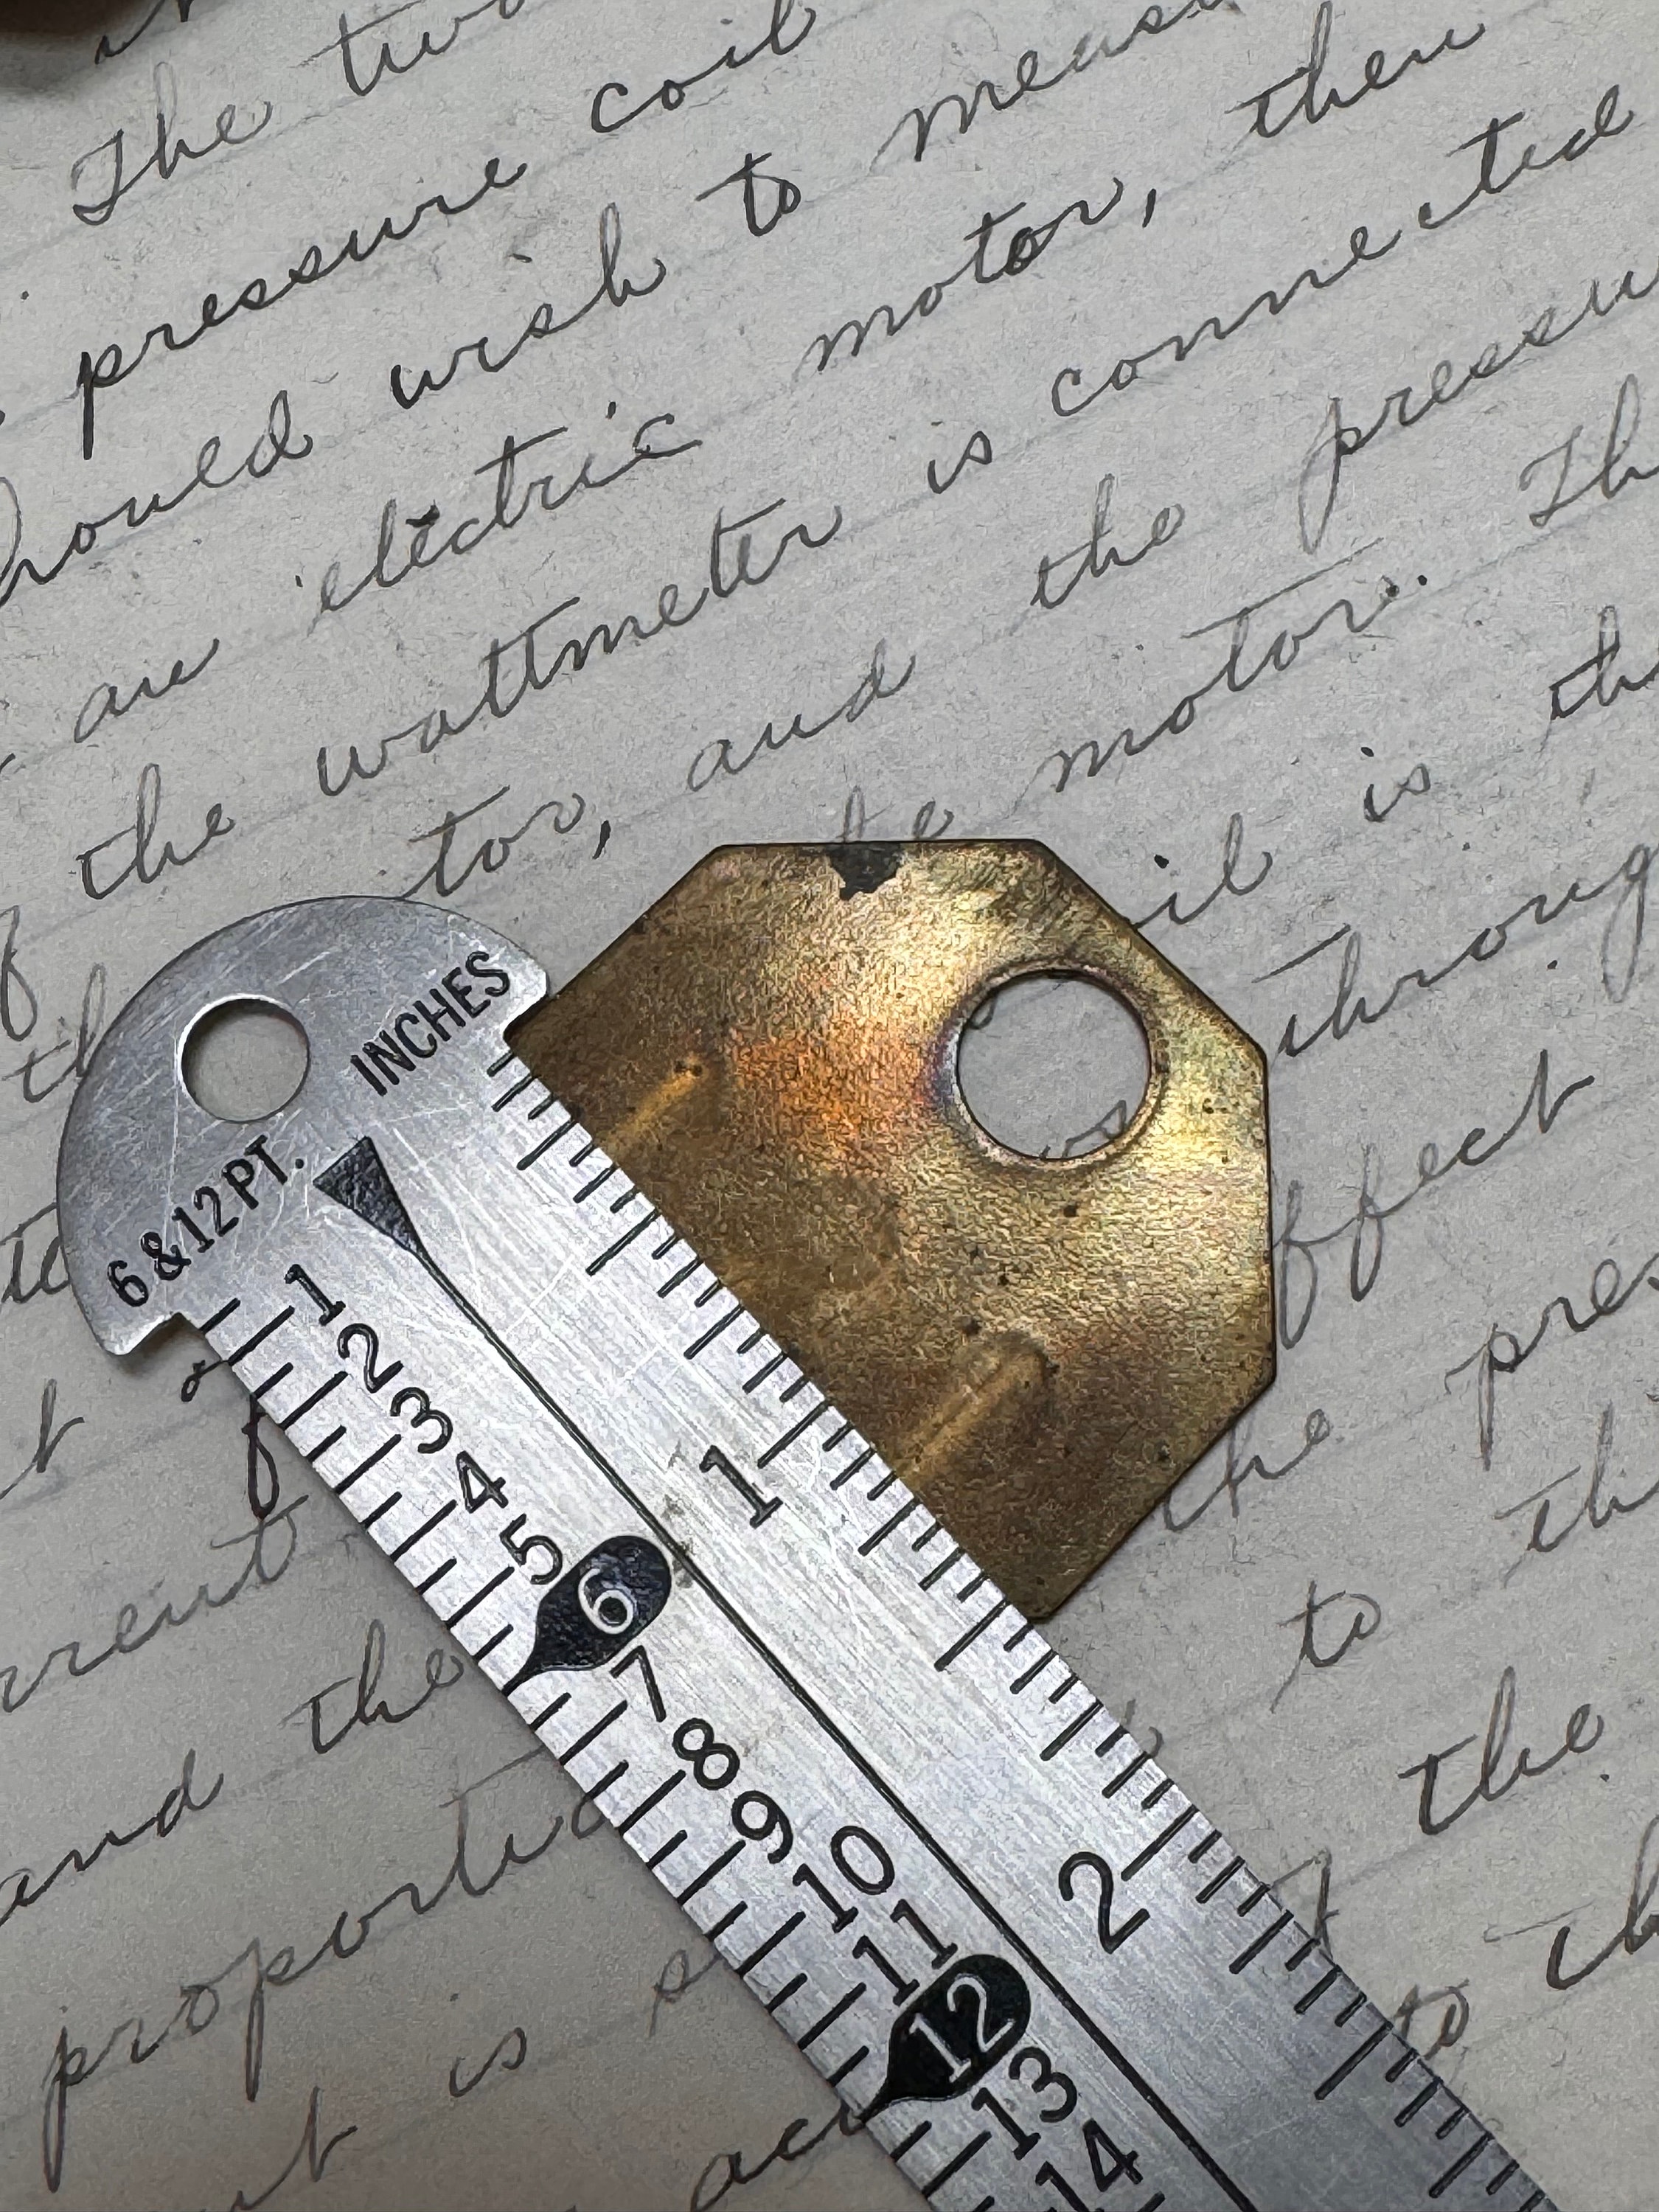 The two
pressure coil
should wish to meas
are electric motor, then
the wattmeter is connected
tor, and the pressu
the motor. Th
il is th
throug
effect
the pres
to th
and the the
proportio to th
is to
INCHES
1
2
6 & 12 PT.
1
2
3
4
5
6
7
8
9
10
11
12
13
14